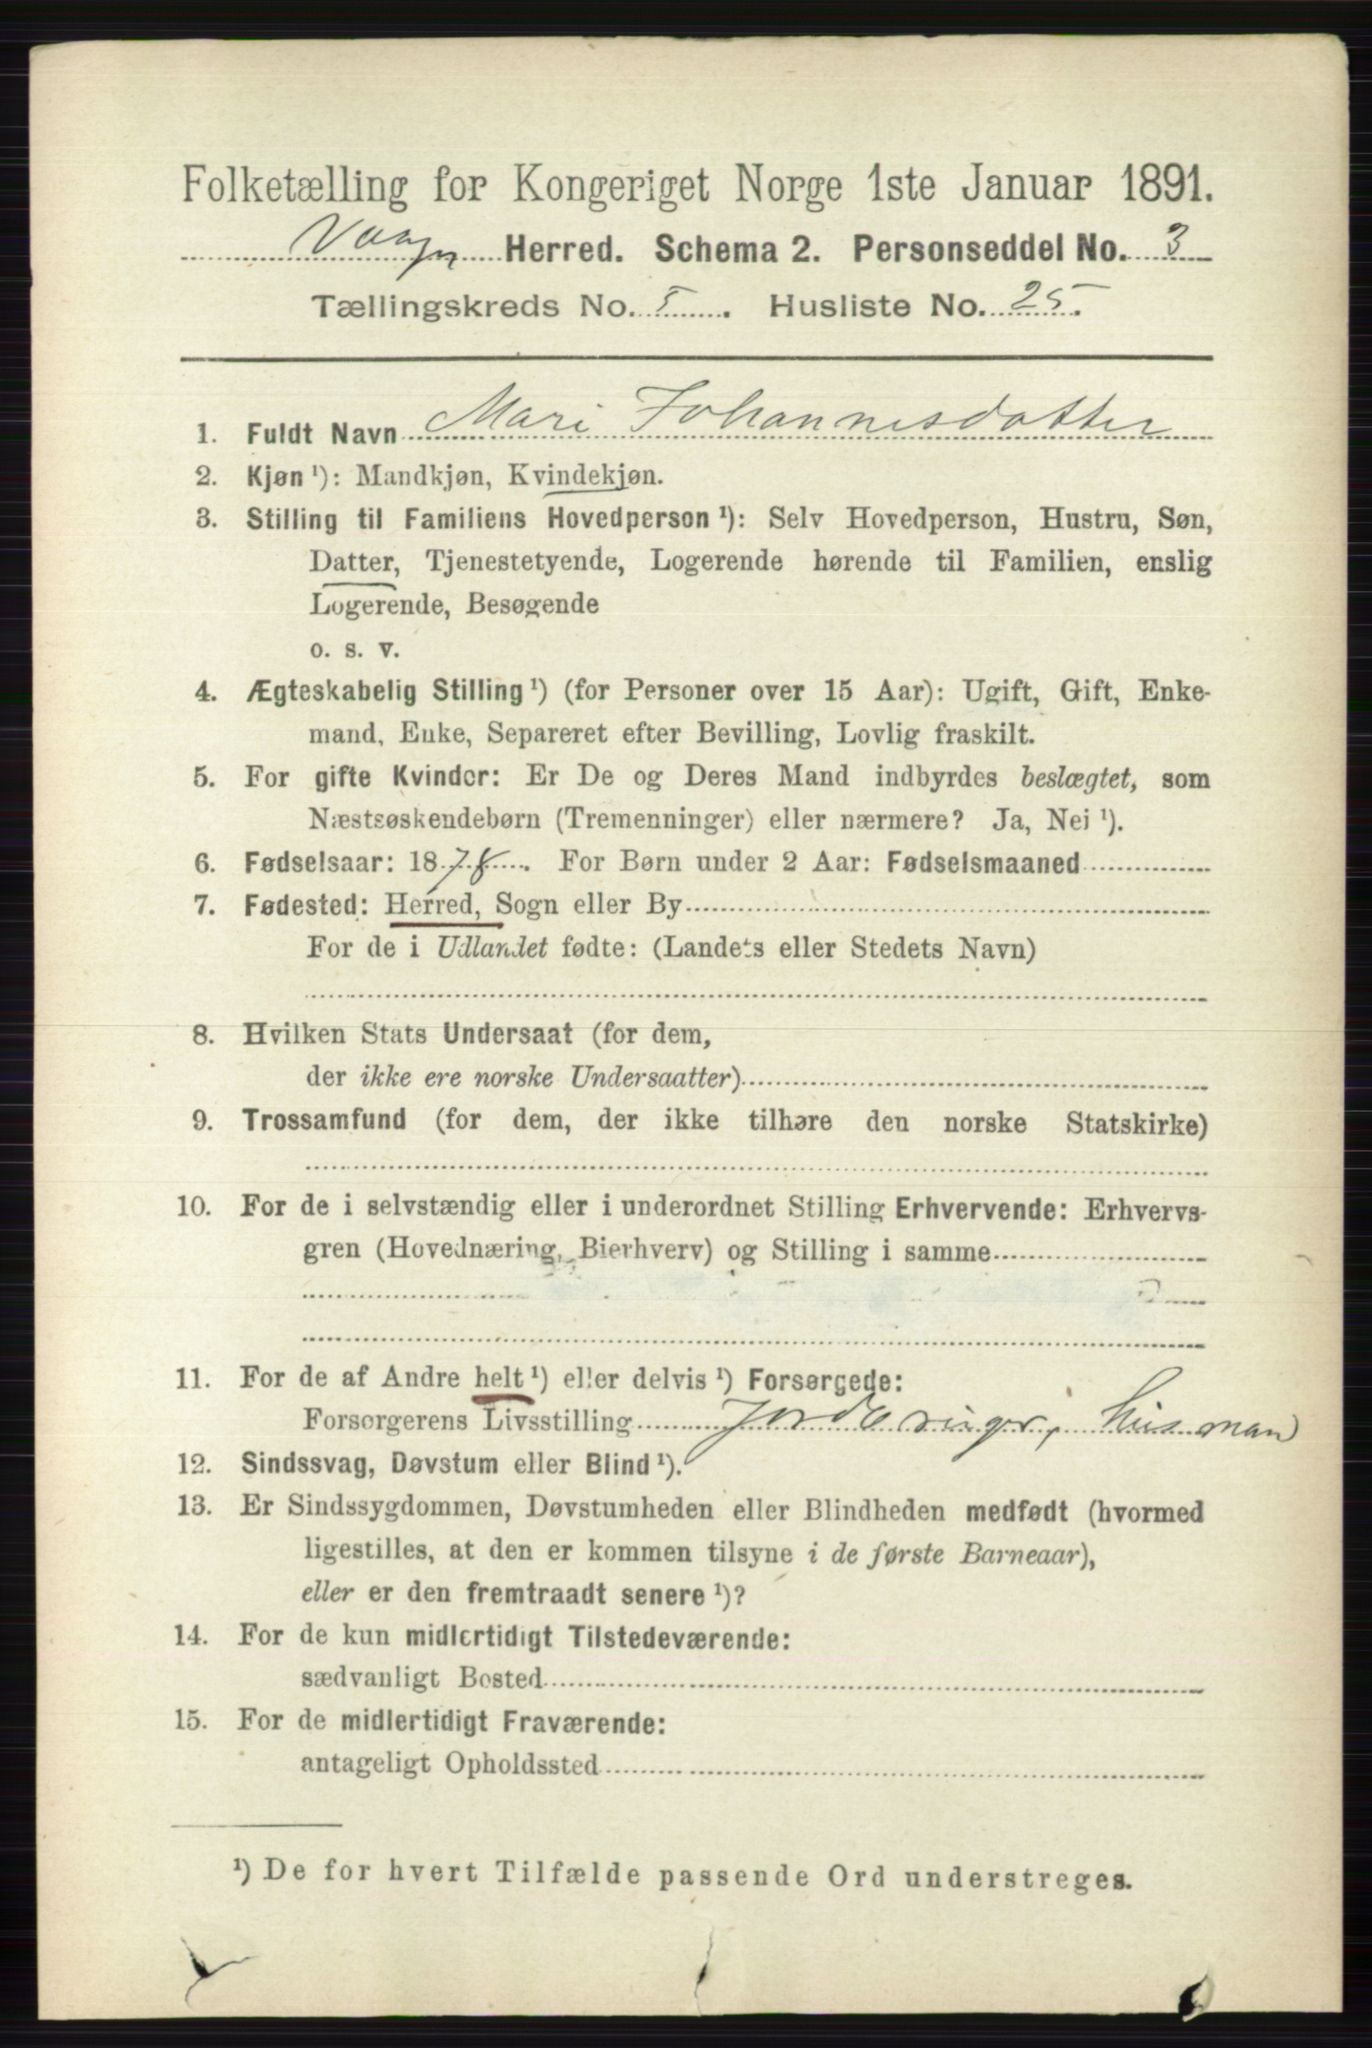 Folketælling for Kongeriget Norge 1ste Januar 1891.
Vaage Herred. Schema 2. Personseddel No. 3
Tællingskreds No. 5. Husliste No. 25.
1. Fuldt Navn Mari Johannesdatter
2. Kjøn ¹): Mandkjøn, Kvindekjøn.
3. Stilling til Familiens Hovedperson ¹): Selv Hovedperson, Hustru, Søn,
Datter, Tjenestetyende, Logerende hørende til Familien, enslig
Logerende, Besøgende
o. s. v.
4. Ægteskabelig Stilling ¹) (for Personer over 15 Aar): Ugift, Gift, Enke-
mand, Enke, Separeret efter Bevilling, Lovlig fraskilt.
5. For gifte Kvinder: Er De og Deres Mand indbyrdes beslægtet, som
Næstsøskendebørn (Tremenninger) eller nærmere? Ja, Nei ¹).
6. Fødselsaar: 1878. For Børn under 2 Aar: Fødselsmaaned
7. Fødested: Herred, Sogn eller By
For de i Udlandet fødte: (Landets eller Stedets Navn)
8. Hvilken Stats Undersaat (for dem,
der ikke ere norske Undersaatter)
9. Trossamfund (for dem, der ikke tilhøre den norske Statskirke)
10. For de i selvstændig eller i underordnet Stilling Erhvervende: Erhvervs-
gren (Hovednæring, Bierhverv) og Stilling i samme
11. For de af Andre helt ¹) eller delvis ¹) Forsørgede:
Forsørgerens Livsstilling Jordbruger, husman
12. Sindssvag, Døvstum eller Blind ¹).
13. Er Sindssygdommen, Døvstumheden eller Blindheden medfødt (hvormed
ligestilles, at den er kommen tilsyne i de første Barneaar),
eller er den fremtraadt senere ¹)?
14. For de kun midlertidigt Tilstedeværende:
sædvanligt Bosted
15. For de midlertidigt Fraværende:
antageligt Opholdssted
¹) De for hvert Tilfælde passende Ord understreges.